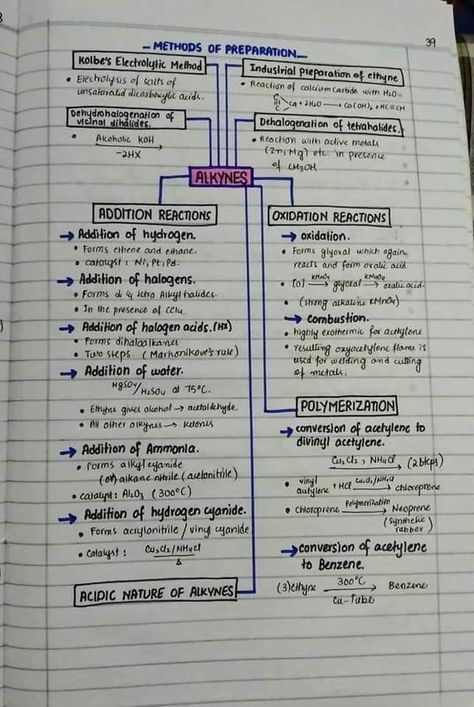 39
METHODS OF PREPARATION
Kolbe's Electrolytic Method
• Electrolysis of salts of
unsaturated dicarboxylic acids.
Industrial preparation of ethyne
• Reaction of calcium carbide with H2O
C
|||
C
Ca + 2H2O → Ca(OH)2 + HC≡CH
Dehydrohalogenation of
vicinal dihalides.
• Alcoholic KOH
-2HX
Dehalogenation of tetrahalides.
• Reaction with active metals
(Zn, Mg) etc in presence
of CH3OH
ALKYNES
ADDITION REACTIONS
→ Addition of hydrogen.
• Forms ethene and ethane.
• catalyst: Ni, Pt, Pd.
→ Addition of halogens.
• Forms di & tetra Alkyl halides.
• In the presence of CCl4.
→ Addition of halogen acids. (HX)
• Forms dihaloalkanes
• Two steps (Markonikove's rule)
→ Addition of water.
HgSO4/H2SO4 at 75°C.
• Ethyne gives alcohol → acetaldehyde.
• All other alkynes → ketones
→ Addition of Ammonia.
• Forms alkyl cyanide
(or) alkane nitrile (acetonitrile)
• Catalyst: Al2O3 (300°C)
→ Addition of hydrogen cyanide.
• Forms acrylonitrile / vinyl cyanide
• Catalyst: Cu2Cl2/NH4Cl
Δ
ACIDIC NATURE OF ALKYNES
OXIDATION REACTIONS
→ oxidation.
• Forms glyoxal which again
reacts and form oxalic acid
• [O] KMnO4 → glyoxal KMnO4 → oxalic acid.
• (strong alkaline KMnO4)
→ combustion.
• highly exothermic for acetylene
• resulting oxyacetylene flame is
used for welding and cutting
of metals.
POLYMERIZATION
→ conversion of acetylene to
divinyl acetylene.
Cu2Cl2, NH4Cl → (2 steps)
• vinyl acetylene + HCl Cu2Cl2/NH4Cl → chloroprene
• Chloroprene Polymerization → Neoprene
(Synthetic
rubber)
→ conversion of acetylene
to Benzene.
(3) ethyne 300°C → Benzene
Cu-Tube